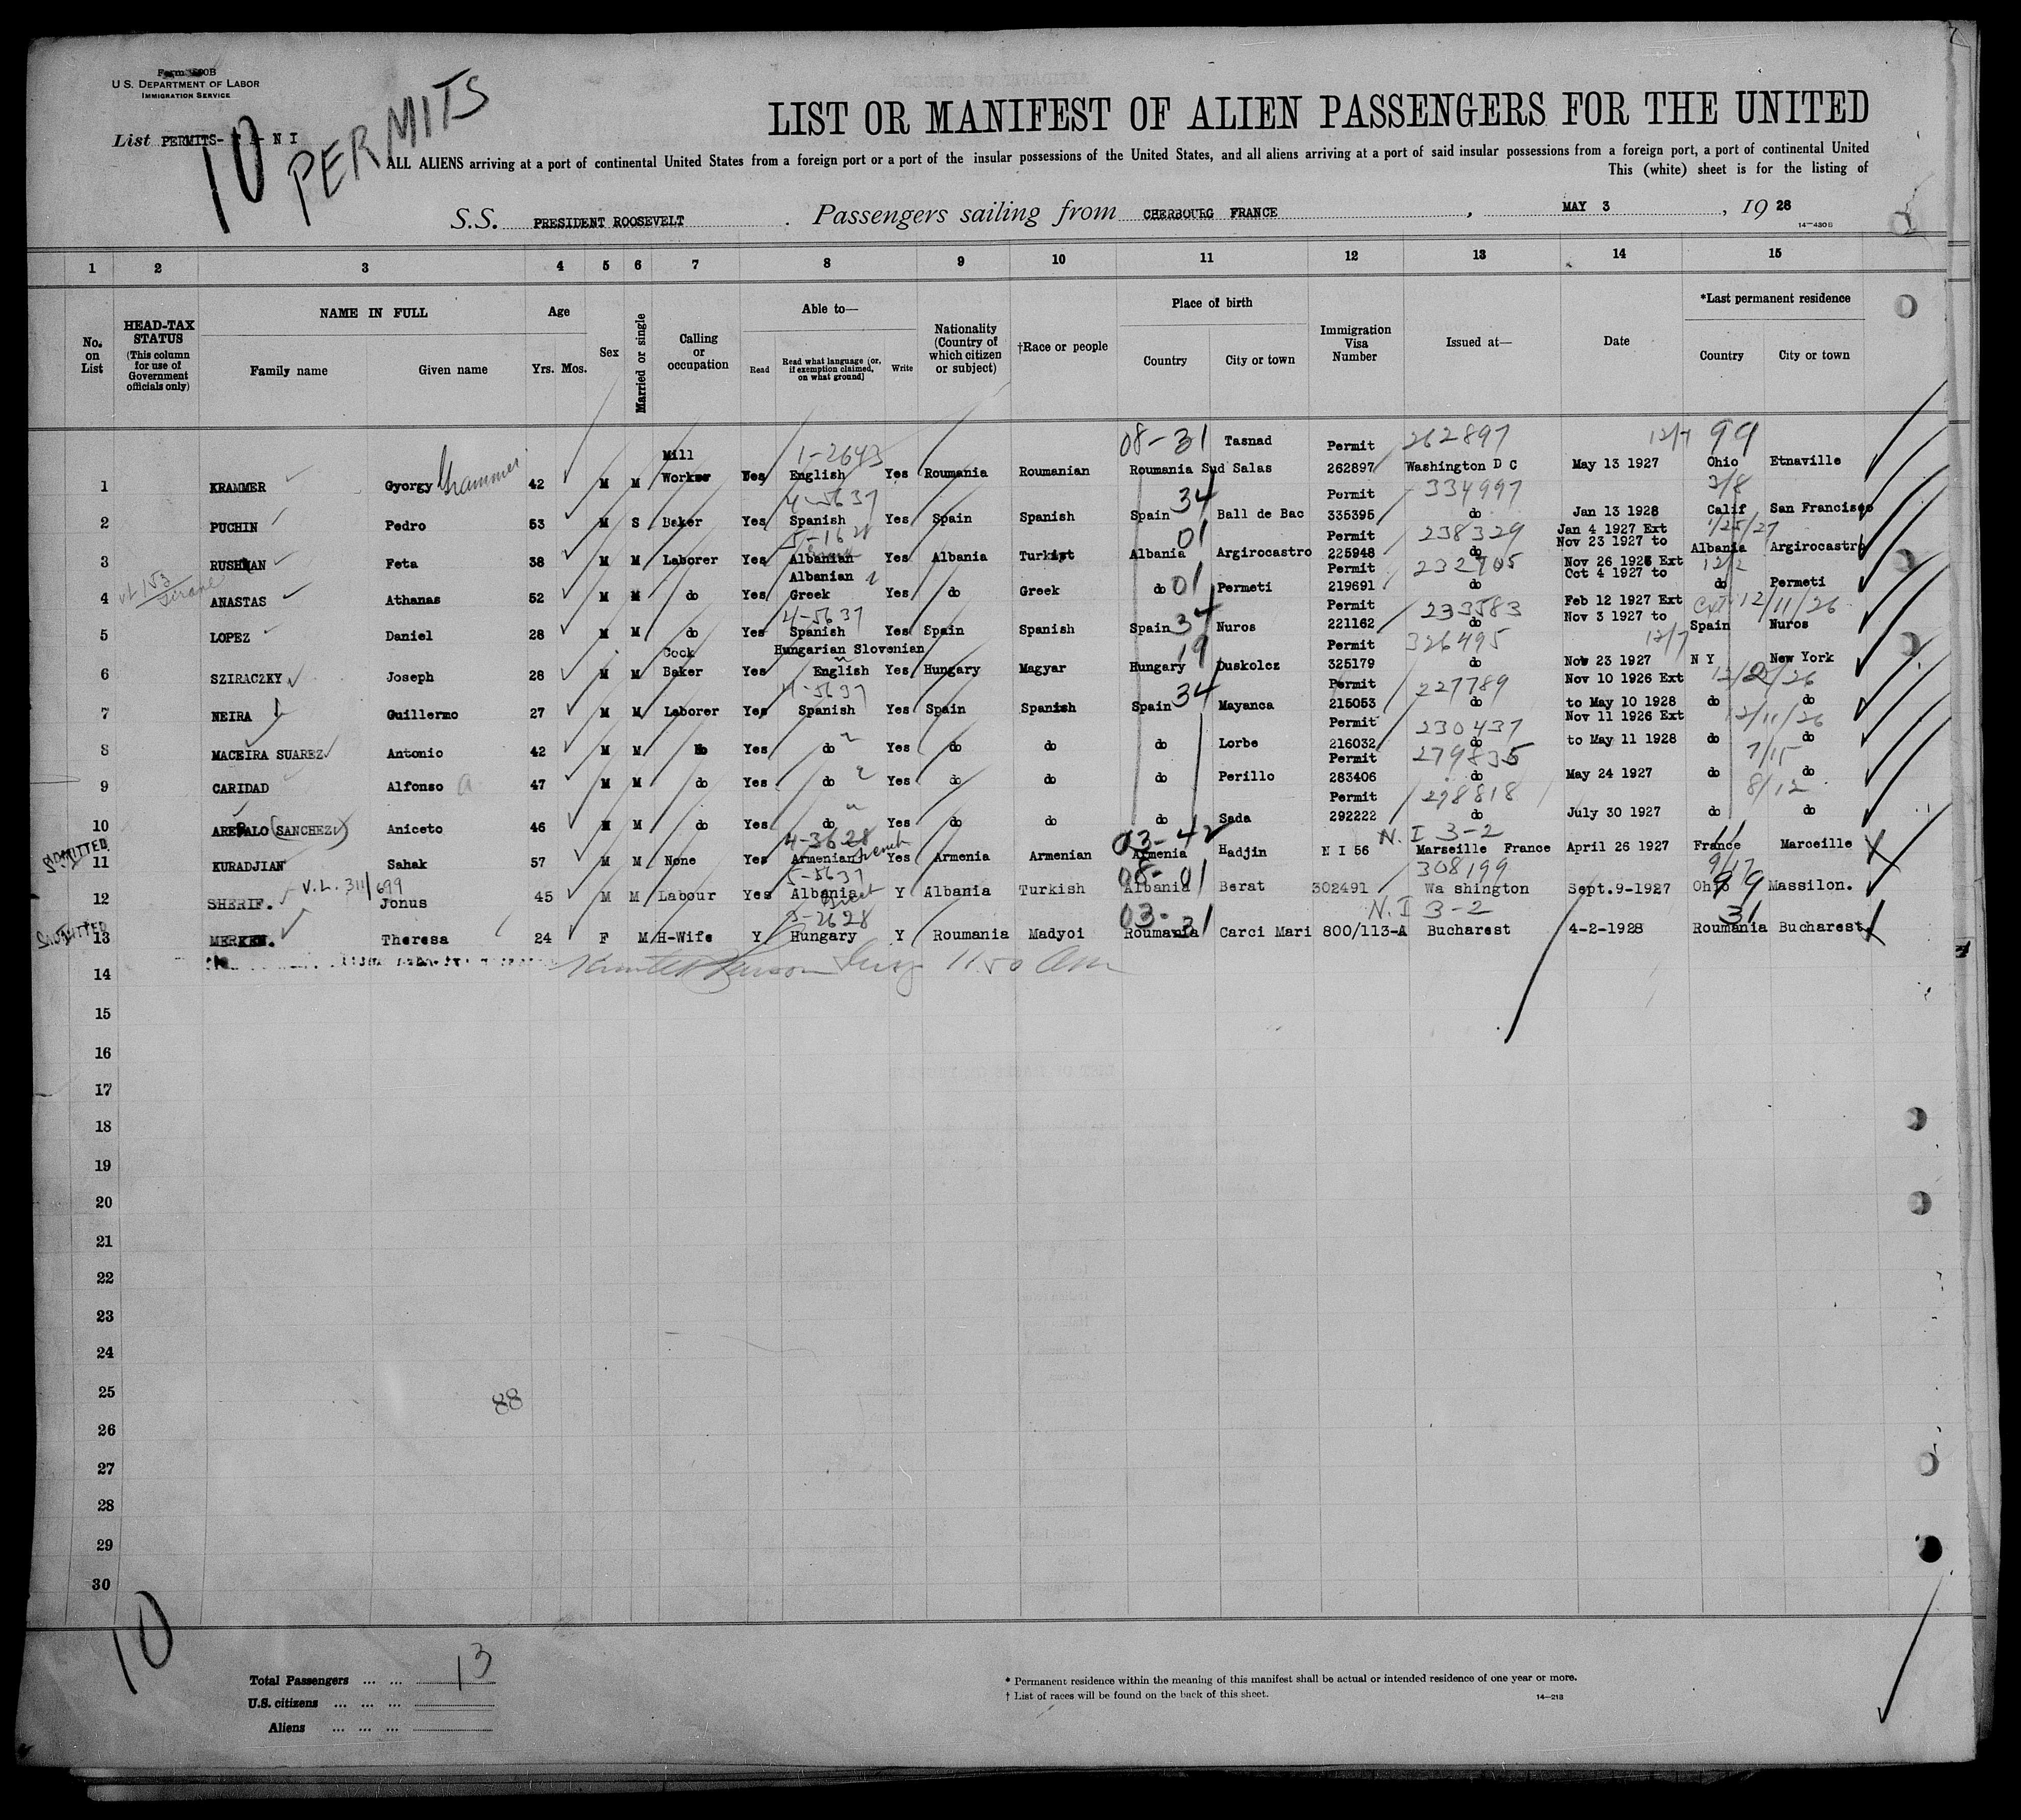 Form 500B
U. S. DEPARTMENT OF LABOR
IMMIGRATION SERVICE
List PERMITS- N I
10 PERMITS
LIST OR MANIFEST OF ALIEN PASSENGERS FOR THE UNITED
ALL ALIENS arriving at a port of continental United States from a foreign port or a port of the insular possessions of the United States, and all aliens arriving at a port of said insular possessions from a foreign port, a port of continental United
This (white) sheet is for the listing of
S.S. PRESIDENT ROOSEVELT. Passengers sailing from CHERBOURG FRANCE, MAY 3, 19 28
14—430 B
1 2 3 4 5 6 7 8 9 10 11 12 13 14 15
No. on List
HEAD-TAX STATUS (This column for use of Government officials only)
NAME IN FULL
Family name Given name
Age
Yrs. Mos.
Sex
Married or single
Calling or occupation
Able to—
Read Read what language (or, if exemption claimed, on what ground) Write
Nationality (Country of which citizen or subject)
†Race or people
Place of birth
Country City or town
Immigration Visa Number
Issued at—
Date
*Last permanent residence
Country City or town
Mill 1-2643 08-31 Tasnad Permit 262897 12/7 99
1 KRAMMER Gyorgy Grammer 42 M M Worker Yes English Yes Roumania Roumanian Roumania Sud Salas 262897 Washington D C May 13 1927 Ohio Etnaville
4-5637 34 Permit 334997 2/8
2 PUCHIN Pedro 53 M S Baker Yes Spanish Yes Spain Spanish Spain Ball de Bac 335395 do Jan 13 1928 Calif San Francisco
5-1628 01 Permit 238329 Jan 4 1927 Ext 1/25/27
3 RUSHMAN Feta 38 M M Laborer Yes Albanian Yes Albania Turkist Albania Argirocastro 225948 do Nov 23 1927 to Albania Argirocastro
Albanian Permit 232705 Nov 26 1926 Ext 12/2
4 ANASTAS Athanas 52 M M do Yes Greek Yes do Greek do 01 Permeti 219691 do Oct 4 1927 to do Permeti
4-5637 Permit 233583 Feb 12 1927 Ext Ext 12/11/26
5 LOPEZ Daniel 28 M M do Yes Spanish Yes Spain Spanish Spain 34 Nuros 221162 do Nov 3 1927 to Spain Nuros
Cock Hungarian Slovenian 19 Permit 326495 12/7
6 SZIRACZKY Joseph 28 M M Baker Yes English Yes Hungary Magyar Hungary Duskolcz 325179 do Nov 23 1927 N Y New York
4-5637 34 Permit 227789 Nov 10 1926 Ext 12/22/26
7 NEIRA Guillermo 27 M M Laborer Yes Spanish Yes Spain Spanish Spain Mayanca 215053 do to May 10 1928 do do
Permit 230437 Nov 11 1926 Ext 12/11/26
8 MACEIRA SUAREZ Antonio 42 M M do Yes do Yes do do do Lorbe 216032 do to May 11 1928 do do
Permit 279835 7/15
9 CARIDAD Alfonso 47 M M do Yes do Yes do do do Perillo 283406 do May 24 1927 do do
Permit 298818 8/12
10 AREVALO (SANCHEZ) Aniceto 46 M M do Yes do Yes do do do Sada 292222 do July 30 1927 do do
ADMITTED 4-3628 French 03-42 N.I 3-2 11
11 KURADJIAN Sahak 57 M M None Yes Armenian Yes Armenia Armenian Armenia Hadjin N I 56 Marseille France April 26 1927 France Marceille
V.L. 311/699 5-5637 08-01 308199 9/17
12 SHERIF. Jonus 45 M M Labour Yes Albania Y Albania Turkish Albania Berat 302491 Wa shington Sept.9-1927 Ohio 99 Massilon.
ADMITTED 5-2628 03-31 N.I 3-2 31
13 MERKEN. Theresa 24 F M H-Wife Y Hungary Y Roumania Madyoi Roumania Carci Mari 800/113-A Bucharest 4-2-1928 Roumania Bucharest
11 50 Am
14
15
16
17
18
19
20
21
22
23
24
25
88
26
27
28
29
30
10
Total Passengers ... ... 13
U.S. citizens ... ... ...
Aliens ... ... ...
* Permanent residence within the meaning of this manifest shall be actual or intended residence of one year or more.
† List of races will be found on the back of this sheet.
14—213